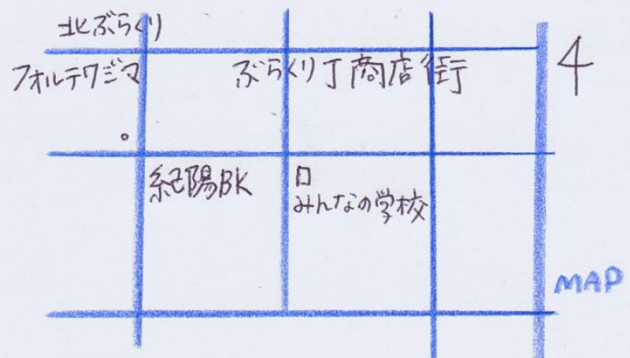 北ぶらくり
フォルテワジマ
ぶらくり丁商店街
4
紀陽BK
みんなの学校
MAP